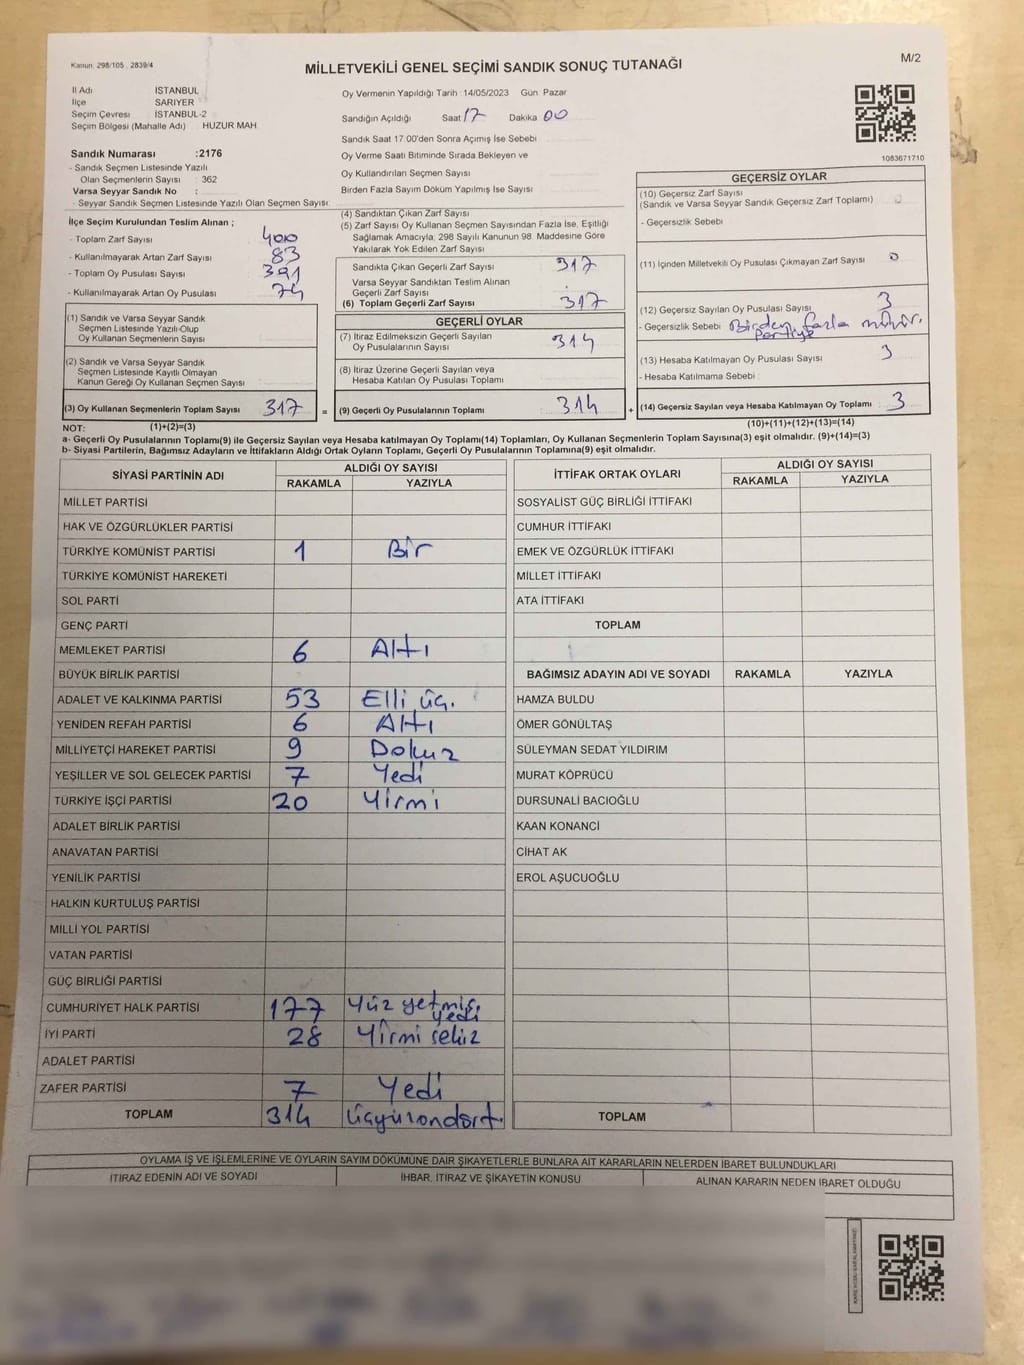 Kanun: 298/105 . 2839/4
MİLLETVEKİLİ GENEL SEÇİMİ SANDIK SONUÇ TUTANAĞI
M/2
İl Adı İSTANBUL
İlçe SARIYER
Seçim Çevresi İSTANBUL-2
Seçim Bölgesi (Mahalle Adı) HUZUR MAH
Sandık Numarası :2176
- Sandık Seçmen Listesinde Yazılı
Olan Seçmenlerin Sayısı : 362
Varsa Seyyar Sandık No :
- Seyyar Sandık Seçmen Listesinde Yazılı Olan Seçmen Sayısı:
Oy Vermenin Yapıldığı Tarih : 14/05/2023 Gün: Pazar
Sandığın Açıldığı Saat 17 Dakika 00
Sandık Saat 17.00'den Sonra Açılmış İse Sebebi
Oy Verme Saati Bitiminde Sırada Bekleyen ve
Oy Kullandırılan Seçmen Sayısı
Birden Fazla Sayım Döküm Yapılmış İse Sayısı
1083671710
İlçe Seçim Kurulundan Teslim Alınan ;
- Toplam Zarf Sayısı 400
- Kullanılmayarak Artan Zarf Sayısı 83
- Toplam Oy Pusulası Sayısı 391
- Kullanılmayarak Artan Oy Pusulası 74
(1) Sandık ve Varsa Seyyar Sandık
Seçmen Listesinde Yazılı Olup
Oy Kullanan Seçmenlerin Sayısı :
(2) Sandık ve Varsa Seyyar Sandık
Seçmen Listesinde Kayıtlı Olmayan
Kanun Gereği Oy Kullanan Seçmen Sayısı
(3) Oy Kullanan Seçmenlerin Toplam Sayısı 317 =
(1)+(2)=(3)
(4) Sandıktan Çıkan Zarf Sayısı
(5) Zarf Sayısı Oy Kullanan Seçmen Sayısından Fazla İse, Eşitliği
Sağlamak Amacıyla, 298 Sayılı Kanunun 98. Maddesine Göre
Yakılarak Yok Edilen Zarf Sayısı
Sandıkta Çıkan Geçerli Zarf Sayısı 317
Varsa Seyyar Sandıktan Teslim Alınan
Geçerli Zarf Sayısı
(6) Toplam Geçerli Zarf Sayısı 317
GEÇERLİ OYLAR
(7) İtiraz Edilmeksizin Geçerli Sayılan
Oy Pusulalarının Sayısı 314
(8) İtiraz Üzerine Geçerli Sayılan veya
Hesaba Katılan Oy Pusulası Toplamı
(9) Geçerli Oy Pusulalarının Toplamı 314 +
GEÇERSİZ OYLAR
(10) Geçersiz Zarf Sayısı
(Sandık ve Varsa Seyyar Sandık Geçersiz Zarf Toplamı)
- Geçersizlik Sebebi
(11) İçinden Milletvekili Oy Pusulası Çıkmayan Zarf Sayısı 0
(12) Geçersiz Sayılan Oy Pusulası Sayısı 3
- Geçersizlik Sebebi Birden fazla partiye mühür.
(13) Hesaba Katılmayan Oy Pusulası Sayısı 3
- Hesaba Katılmama Sebebi
(14) Geçersiz Sayılan veya Hesaba Katılmayan Oy Toplamı 3
(10)+(11)+(12)+(13)=(14)
NOT:
a- Geçerli Oy Pusulalarının Toplamı(9) ile Geçersiz Sayılan veya Hesaba katılmayan Oy Toplamı(14) Toplamları, Oy Kullanan Seçmenlerin Toplam Sayısına(3) eşit olmalıdır. (9)+(14)=(3)
b- Siyasi Partilerin, Bağımsız Adayların ve İttifakların Aldığı Ortak Oyların Toplamı, Geçerli Oy Pusulalarının Toplamına(9) eşit olmalıdır.
SİYASİ PARTİNİN ADI ALDIĞI OY SAYISI
RAKAMLA YAZIYLA
MİLLET PARTİSİ
HAK VE ÖZGÜRLÜKLER PARTİSİ
TÜRKİYE KOMÜNİST PARTİSİ 1 Bir
TÜRKİYE KOMÜNİST HAREKETİ
SOL PARTİ
GENÇ PARTİ
MEMLEKET PARTİSİ 6 Altı
BÜYÜK BİRLİK PARTİSİ
ADALET VE KALKINMA PARTİSİ 53 Elli üç.
YENİDEN REFAH PARTİSİ 6 Altı
MİLLİYETÇİ HAREKET PARTİSİ 9 Dokuz
YEŞİLLER VE SOL GELECEK PARTİSİ 7 Yedi
TÜRKİYE İŞÇİ PARTİSİ 20 Yirmi
ADALET BİRLİK PARTİSİ
ANAVATAN PARTİSİ
YENİLİK PARTİSİ
HALKIN KURTULUŞ PARTİSİ
MİLLİ YOL PARTİSİ
VATAN PARTİSİ
GÜÇ BİRLİĞİ PARTİSİ
CUMHURİYET HALK PARTİSİ 177 Yüz yetmiş yedi
İYİ PARTİ 28 Yirmi sekiz
ADALET PARTİSİ
ZAFER PARTİSİ 7 Yedi
TOPLAM 314 Üçyüzondört.
İTTİFAK ORTAK OYLARI ALDIĞI OY SAYISI
RAKAMLA YAZIYLA
SOSYALİST GÜÇ BİRLİĞİ İTTİFAKI
CUMHUR İTTİFAKI
EMEK VE ÖZGÜRLÜK İTTİFAKI
MİLLET İTTİFAKI
ATA İTTİFAKI
TOPLAM
BAĞIMSIZ ADAYIN ADI VE SOYADI RAKAMLA YAZIYLA
HAMZA BULDU
ÖMER GÖNÜLTAŞ
SÜLEYMAN SEDAT YILDIRIM
MURAT KÖPRÜCÜ
DURSUNALİ BACIOĞLU
KAAN KONANCİ
CİHAT AK
EROL AŞUCUOĞLU
TOPLAM
OYLAMA İŞ VE İŞLEMLERİNE VE OYLARIN SAYIM DÖKÜMÜNE DAİR ŞİKAYETLERLE BUNLARA AİT KARARLARIN NELERDEN İBARET BULUNDUKLARI
İTİRAZ EDENİN ADI VE SOYADI İHBAR, İTİRAZ VE ŞİKAYETİN KONUSU ALINAN KARARIN NEDEN İBARET OLDUĞU